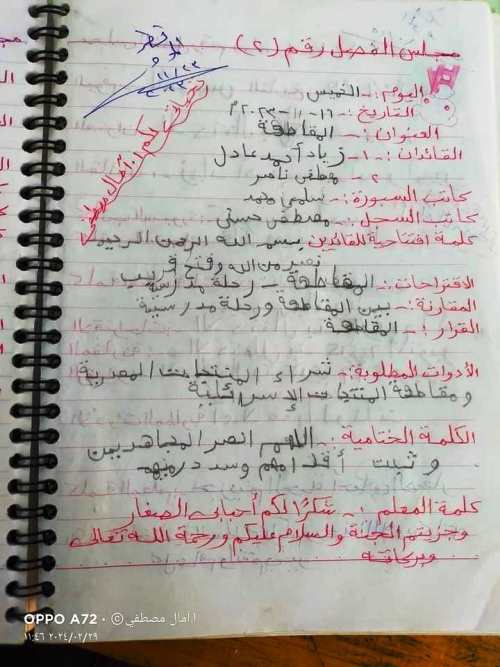 مجلس الفصل رقم (٢)
اليوم :- الخميس
التاريخ :- ١٦-١١-٢٠٢٣م
العنوان :- المقاطعة
القائدان :- ١- زياد أحمد عادل
٢- مصطفى ناصر
كاتب السبورة :- سلمى محمد
كاتب السجل :- مصطفى حسنى
كلمة افتتاحية للقائدين بسم الله الرحمن الرحيم
نصر من الله وفتح قريب
الاقتراحات :- المقاطعة - رحلة مدرسية
المقارنة :- بين المقاطعة ورحلة مدرسية
القرار :- المقاطعة
الأدوات المطلوبة :- شراء المنتجات المصرية
ومقاطعة المنتجات الإسرائلية
الكلمة الختامية :- اللهم انصر المجاهدين
وثبت أقدامهم وسدد رميهم
كلمة المعلم :- شكرًا لكم أحبابى الصغار
وجزيتم الجنة والسلام عليكم ورحمة الله تعالى
وبركاته
OPPO A72 · © امال مصطفي
٢٠٢٤/٠٢/٢٩ ١١:٤٦